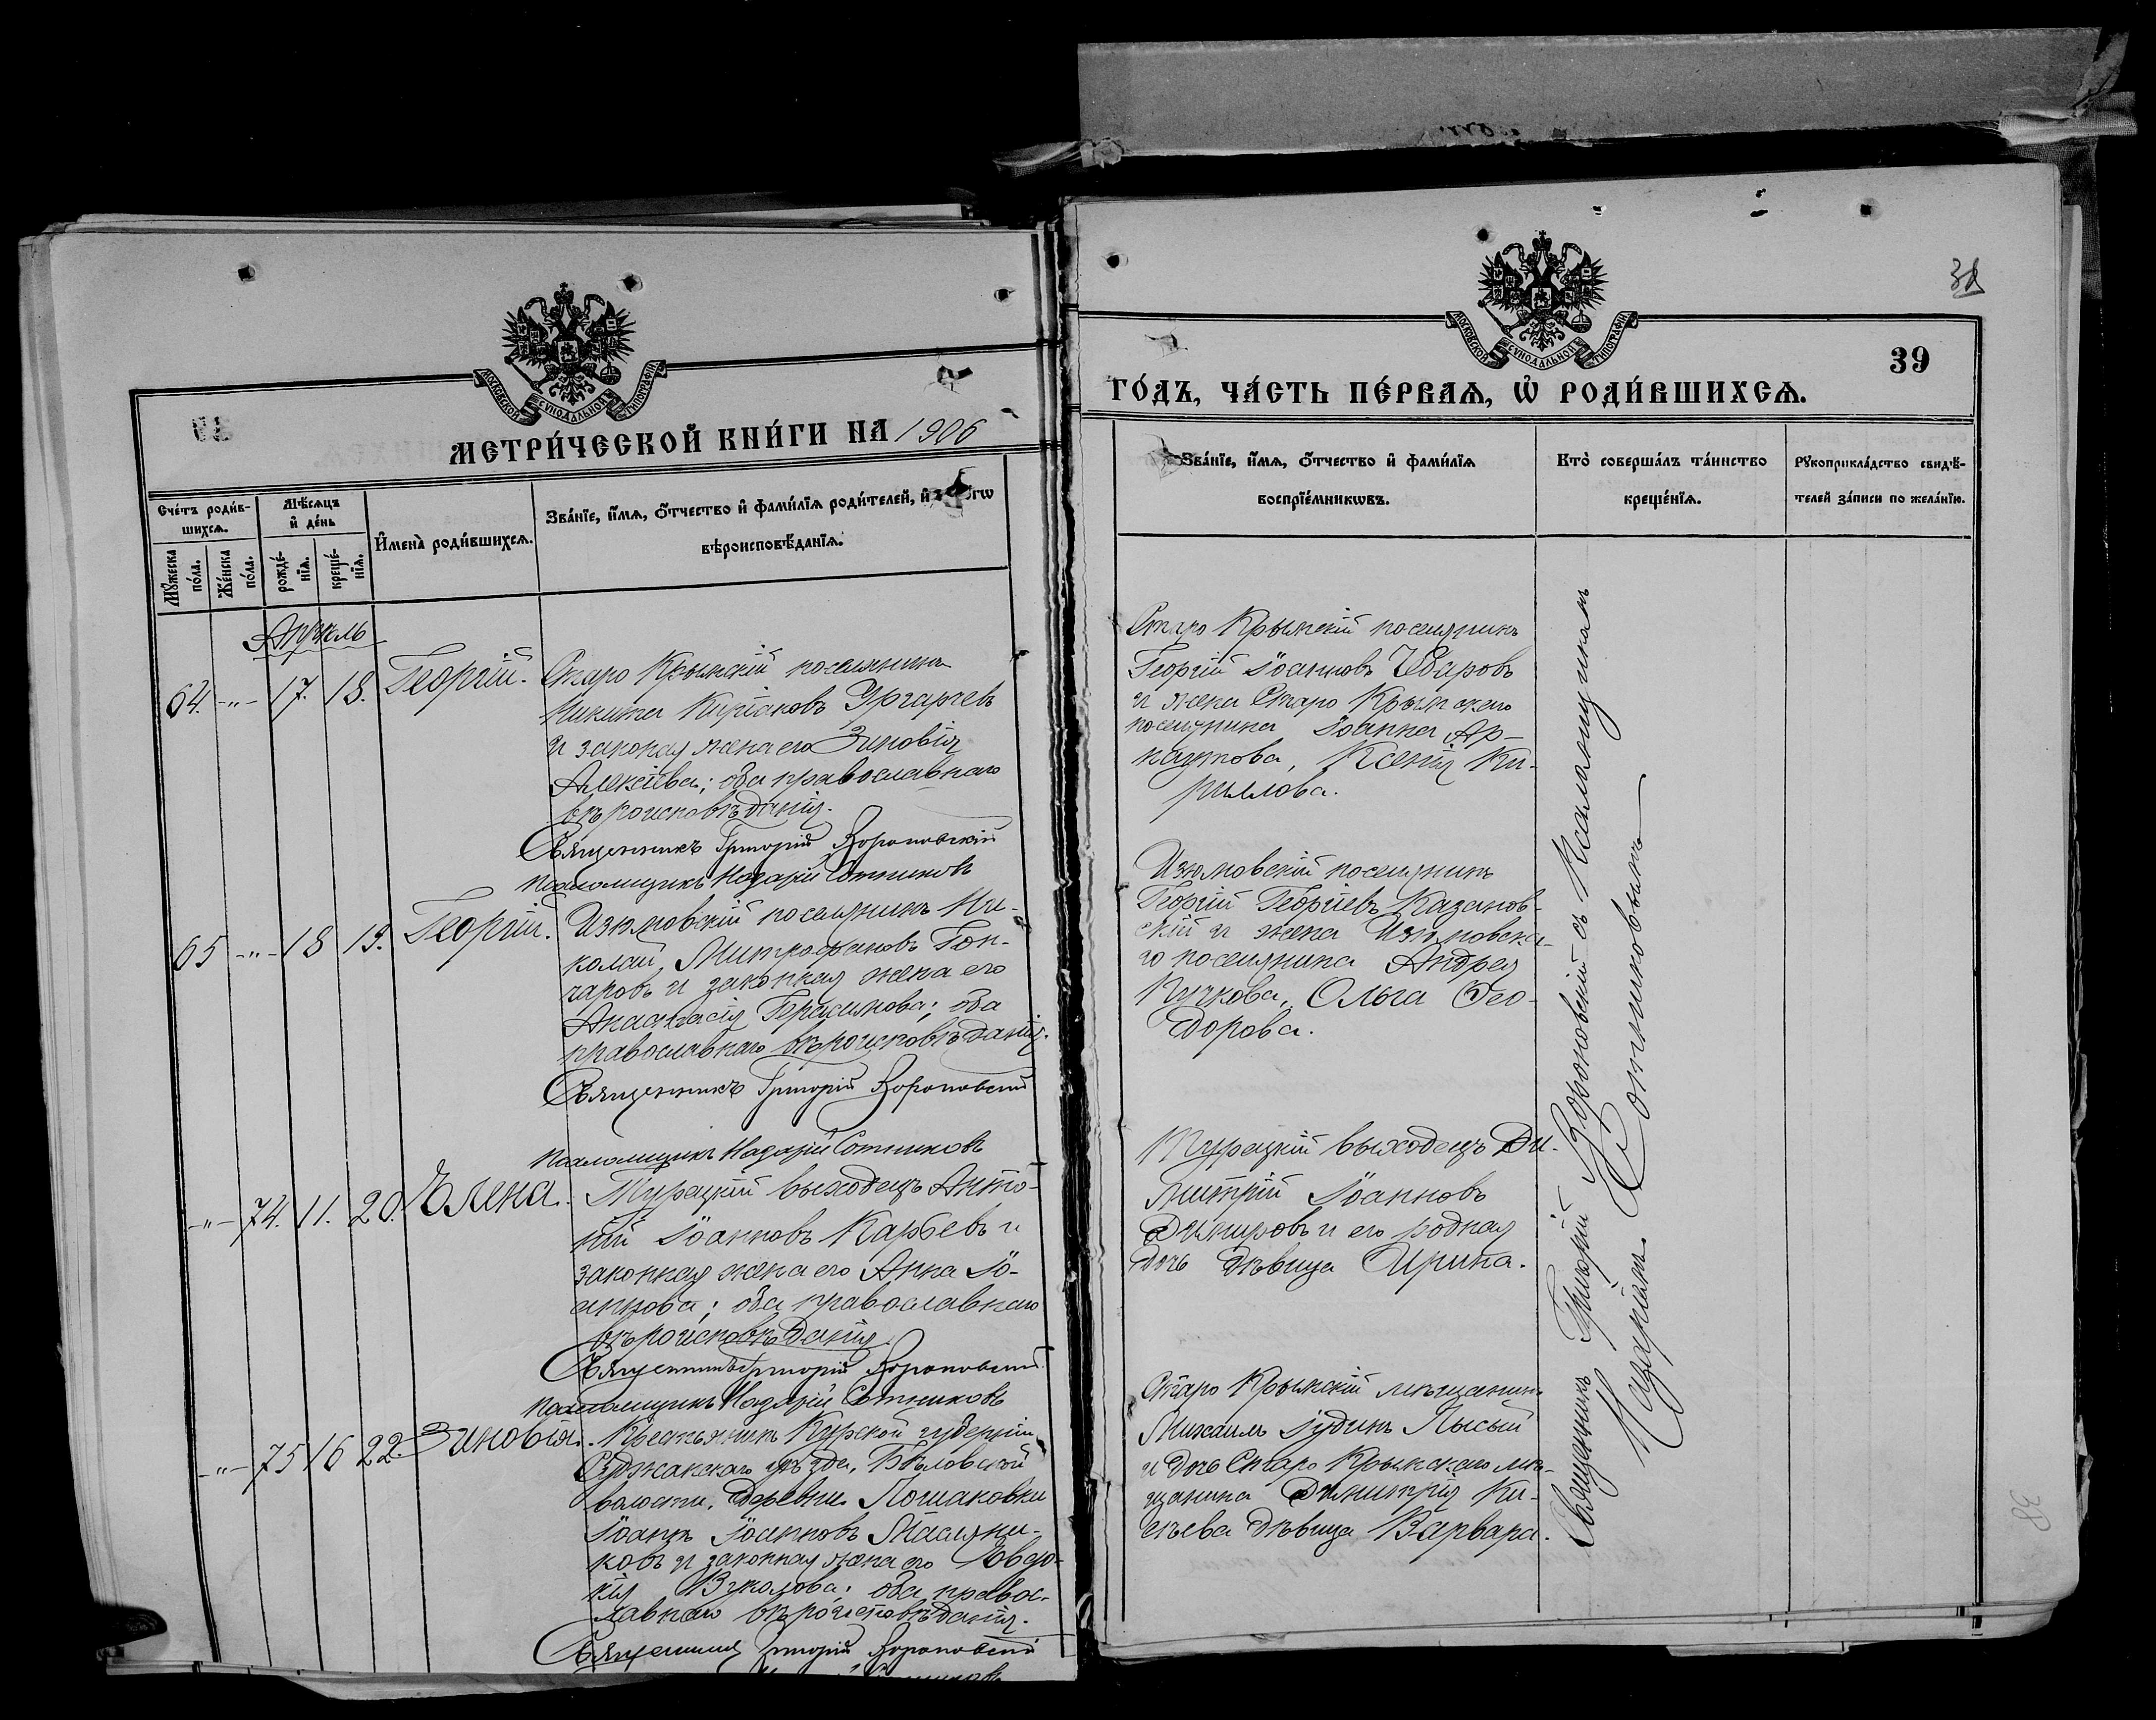 МОСКОВСКОЙ СѴНОДАЛЬНОЙ ТИПОГРАФІИ
МЕТРИ́ЧЕСКОЙ КНИ́ГИ НА 1906
Сче́тъ роди́в-
шихсѧ.
Мꙋ́жеска
по́ла.
Же́нска
по́ла.
Мѣ́сѧцъ
и҆ де́нь
рожде́-
нїѧ.
креще́-
нїѧ.
И҆мена̀ роди́вшихсѧ.
Зва́нїе, и҆́мѧ, ѻ҆́тчество и҆ фами́лїѧ роди́телей, и҆
вѣроисповѣ́данїѧ.
Апрѣль
64. -"- 17. 18. Георгій.
Старо Крымскій поселянинъ
Никита Киріаковъ Ургарчевъ
и законая жена его Зиновія
Алексѣева; оба православнаго
вѣроисповѣданія.
Священникъ Григорій Вороновскій
Псаломщикъ Назарій Сотниковъ
65 -"- 18 19. Георгій.
Изюмовскій поселянинъ Ни-
колай Митрофановъ Гон-
чаровъ и законная жена его
Анастасія Герасимова; оба
православнаго вѣроисповѣданія.
Священникъ Григорій Вороновскій
Псаломщикъ Назарій Сотниковъ
-"- 74. 11. 20. Елена.
Турецкій выходецъ Анто-
ній Іоанновъ Карбевъ и
законная жена его Анна Іо-
аннова; оба православнаго
вѣроисповѣданія
Священникъ Григорій Вороновскій
Псаломщикъ Назарій Сотниковъ
-"- 75 16 22. Зиновія.
Крестьянинъ Курской губерніи
Суджанскаго уѣзда, Бѣловской
волости, деревни Пошаковки
Іоаннъ Іоанновъ Масляни-
ковъ и законная жена его Евдо-
кія Вуколова; оба правос-
лавнаго вѣроисповѣданія.
Священникъ Григорій Вороновскій
МОСКОВСКОЙ СѴНОДАЛЬНОЙ ТИПОГРАФІИ
39
ГО́ДЪ, ЧА́СТЬ ПЕ́РВАѦ, Ѡ҆ РОДИ́ВШИХСѦ.
Зва́нїе, и҆́мѧ, ѻ҆́тчество и҆ фами́лїѧ
воспрїе́мникѡвъ.
Кто̀ соверша́лъ та́инство
креще́нїѧ.
Рꙋкоприкла́дство свидѣ́-
телей за́писи по жела́нїю.
Старо Крымскій поселянинъ
Георгій Іоанновъ Чебаровъ
и жена Старо Крымскаго
поселянина Іоанна Ар-
наутова, Ксенія Ки-
рилова.
Изюмовскій поселянинъ
Георгій Георгіевъ Казанов-
скій и жена Изюмовска-
го поселянина Андрея
Кучкова, Ольга Ѳео-
дорова.
Турецкій выходецъ Ди-
митрій Іоанновъ
Димировъ и его родная
дочь дѣвица Ирина.
Старо Крымскій мѣщанинъ
Михаилъ Іудинъ Лысый
и дочь Старо Крымскаго мѣ-
щанина Димитрія Ки-
дѣвица Варвара.
Священникъ Григорій Вороновскій съ Псаломщикомъ
Назаріемъ Сотниковымъ